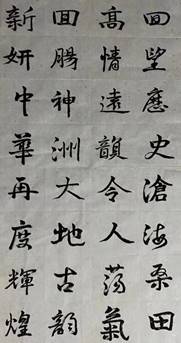 回望歷史滄海桑田
高情遠韻令人蕩氣
回腸神洲大地古韵
新妍中華再度輝煌